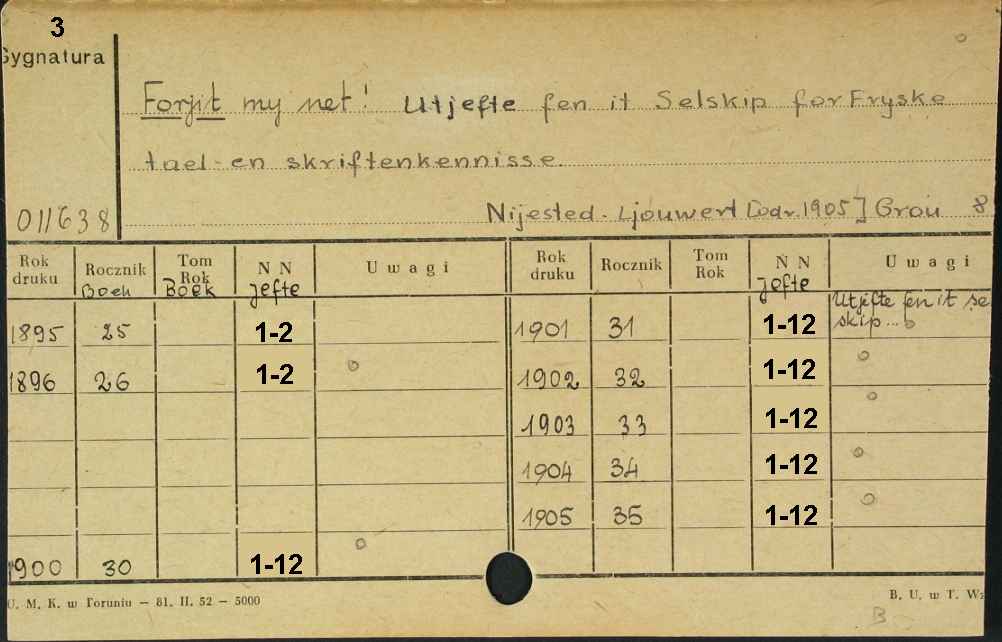 3
Sygnatura
Forjit my net! Utjefte fen it Selskip for Fryske
tael- en skriftenkennisse.
011638
Nijested. Ljouwert [odr. 1905] Grou 8
Rok druku Rocznik Boek Tom Rok Boek N N jefte Uwagi Rok druku Rocznik Tom Rok N N jefte Uwagi
1895 25 1-2 1901 31 1-12 Utjefte fen it se
skip...
1896 26 1-2 1902 32 1-12
1903 33 1-12
1904 34 1-12
1905 35 1-12
1900 30 1-12
U. M. K. w Toruniu – 81. II. 52 – 5000
B. U. w T. Wz
B